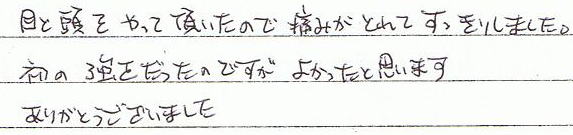 目と頭をやって頂いたので痛みがとれてすっきりしました。
初の強さだったのですがよかったと思います
ありがとうございました